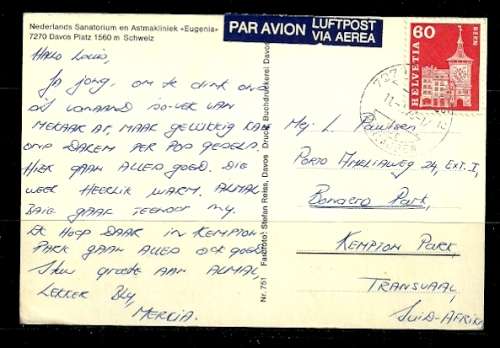 Nederlands Sanatorium en Astmakliniek «Eugenia»
7270 Davos Platz 1560 m Schweiz
PAR AVION LUFTPOST
VIA AEREA
60
BERN
HELVETIA
Hallo Louis,
Ja jong, om te dink ons
sit vanaand so-ver van
mekaar af, maar gelukkig kan
ons darem per pos gesels.
Hier gaan alles goed. Die
weer heerlik warm. Almal
baie gaaf teenoor my.
Ek hoop daar in Kempton
Park gaan alles ook goed.
Sê groete aan almal.
Lekker Bly,
Mej L. Paulsen
Porto Amelia weg 24, Ext. I,
Bonaero Park,
Kempton Park,
Transvaal,
Suid-Afrika
Nr. 751 Fachfoto: Stefan Davos Druck: Buchdruckerei Davos